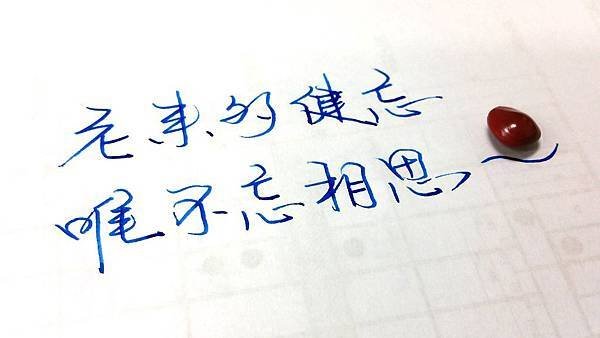 老来的健忘
唯不忘相思